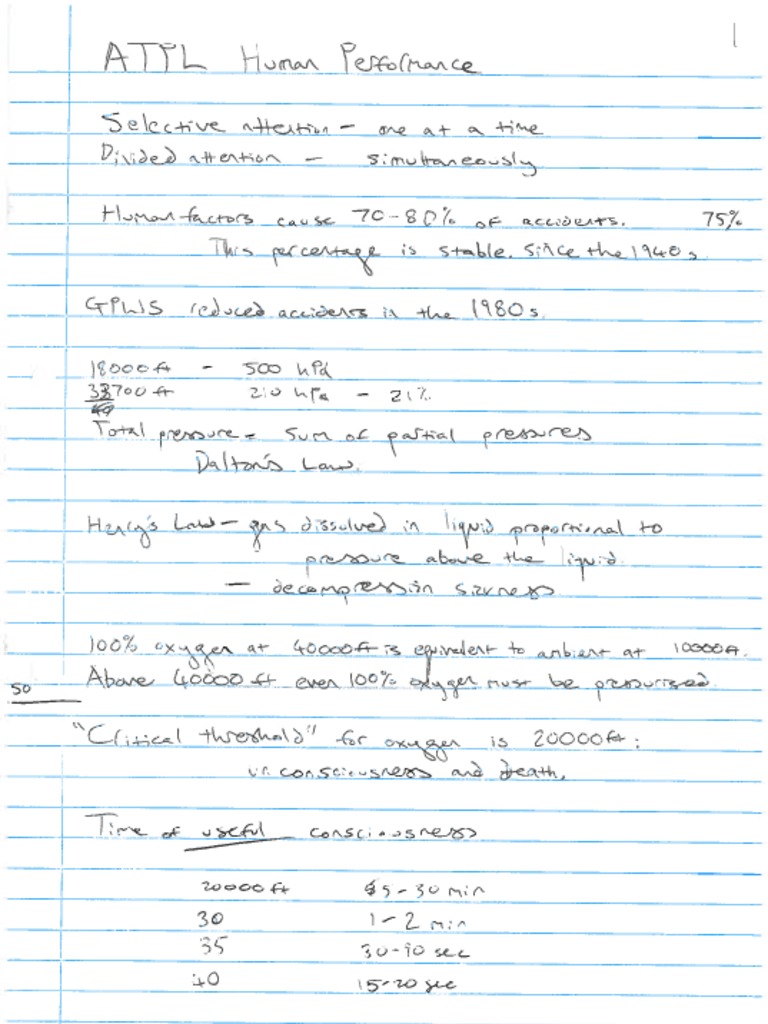 1
ATPL Human Performance
Selective attention - one at a time
Divided attention - simultaneously
Human factors cause 70-80% of accidents. 75%
This percentage is stable. Since the 1940s
GPWS reduced accidents in the 1980s.
18000ft - 500 hPa
33700 ft 210 hPa - 21%
Total pressure = sum of partial pressures
Dalton's Law.
Henry's Law - gas dissolved in liquid proportional to
pressure above the liquid.
- decompression sickness
100% oxygen at 40000ft is equivalent to ambient at 10000ft.
Above 40000 ft even 100% oxygen must be pressurised.
50
"Critical threshold" for oxygen is 20000ft:
unconsciousness and death.
Time of useful consciousness
20000 ft 5-30 min
30 1-2 min
35 30-90 sec
40 15-20 sec